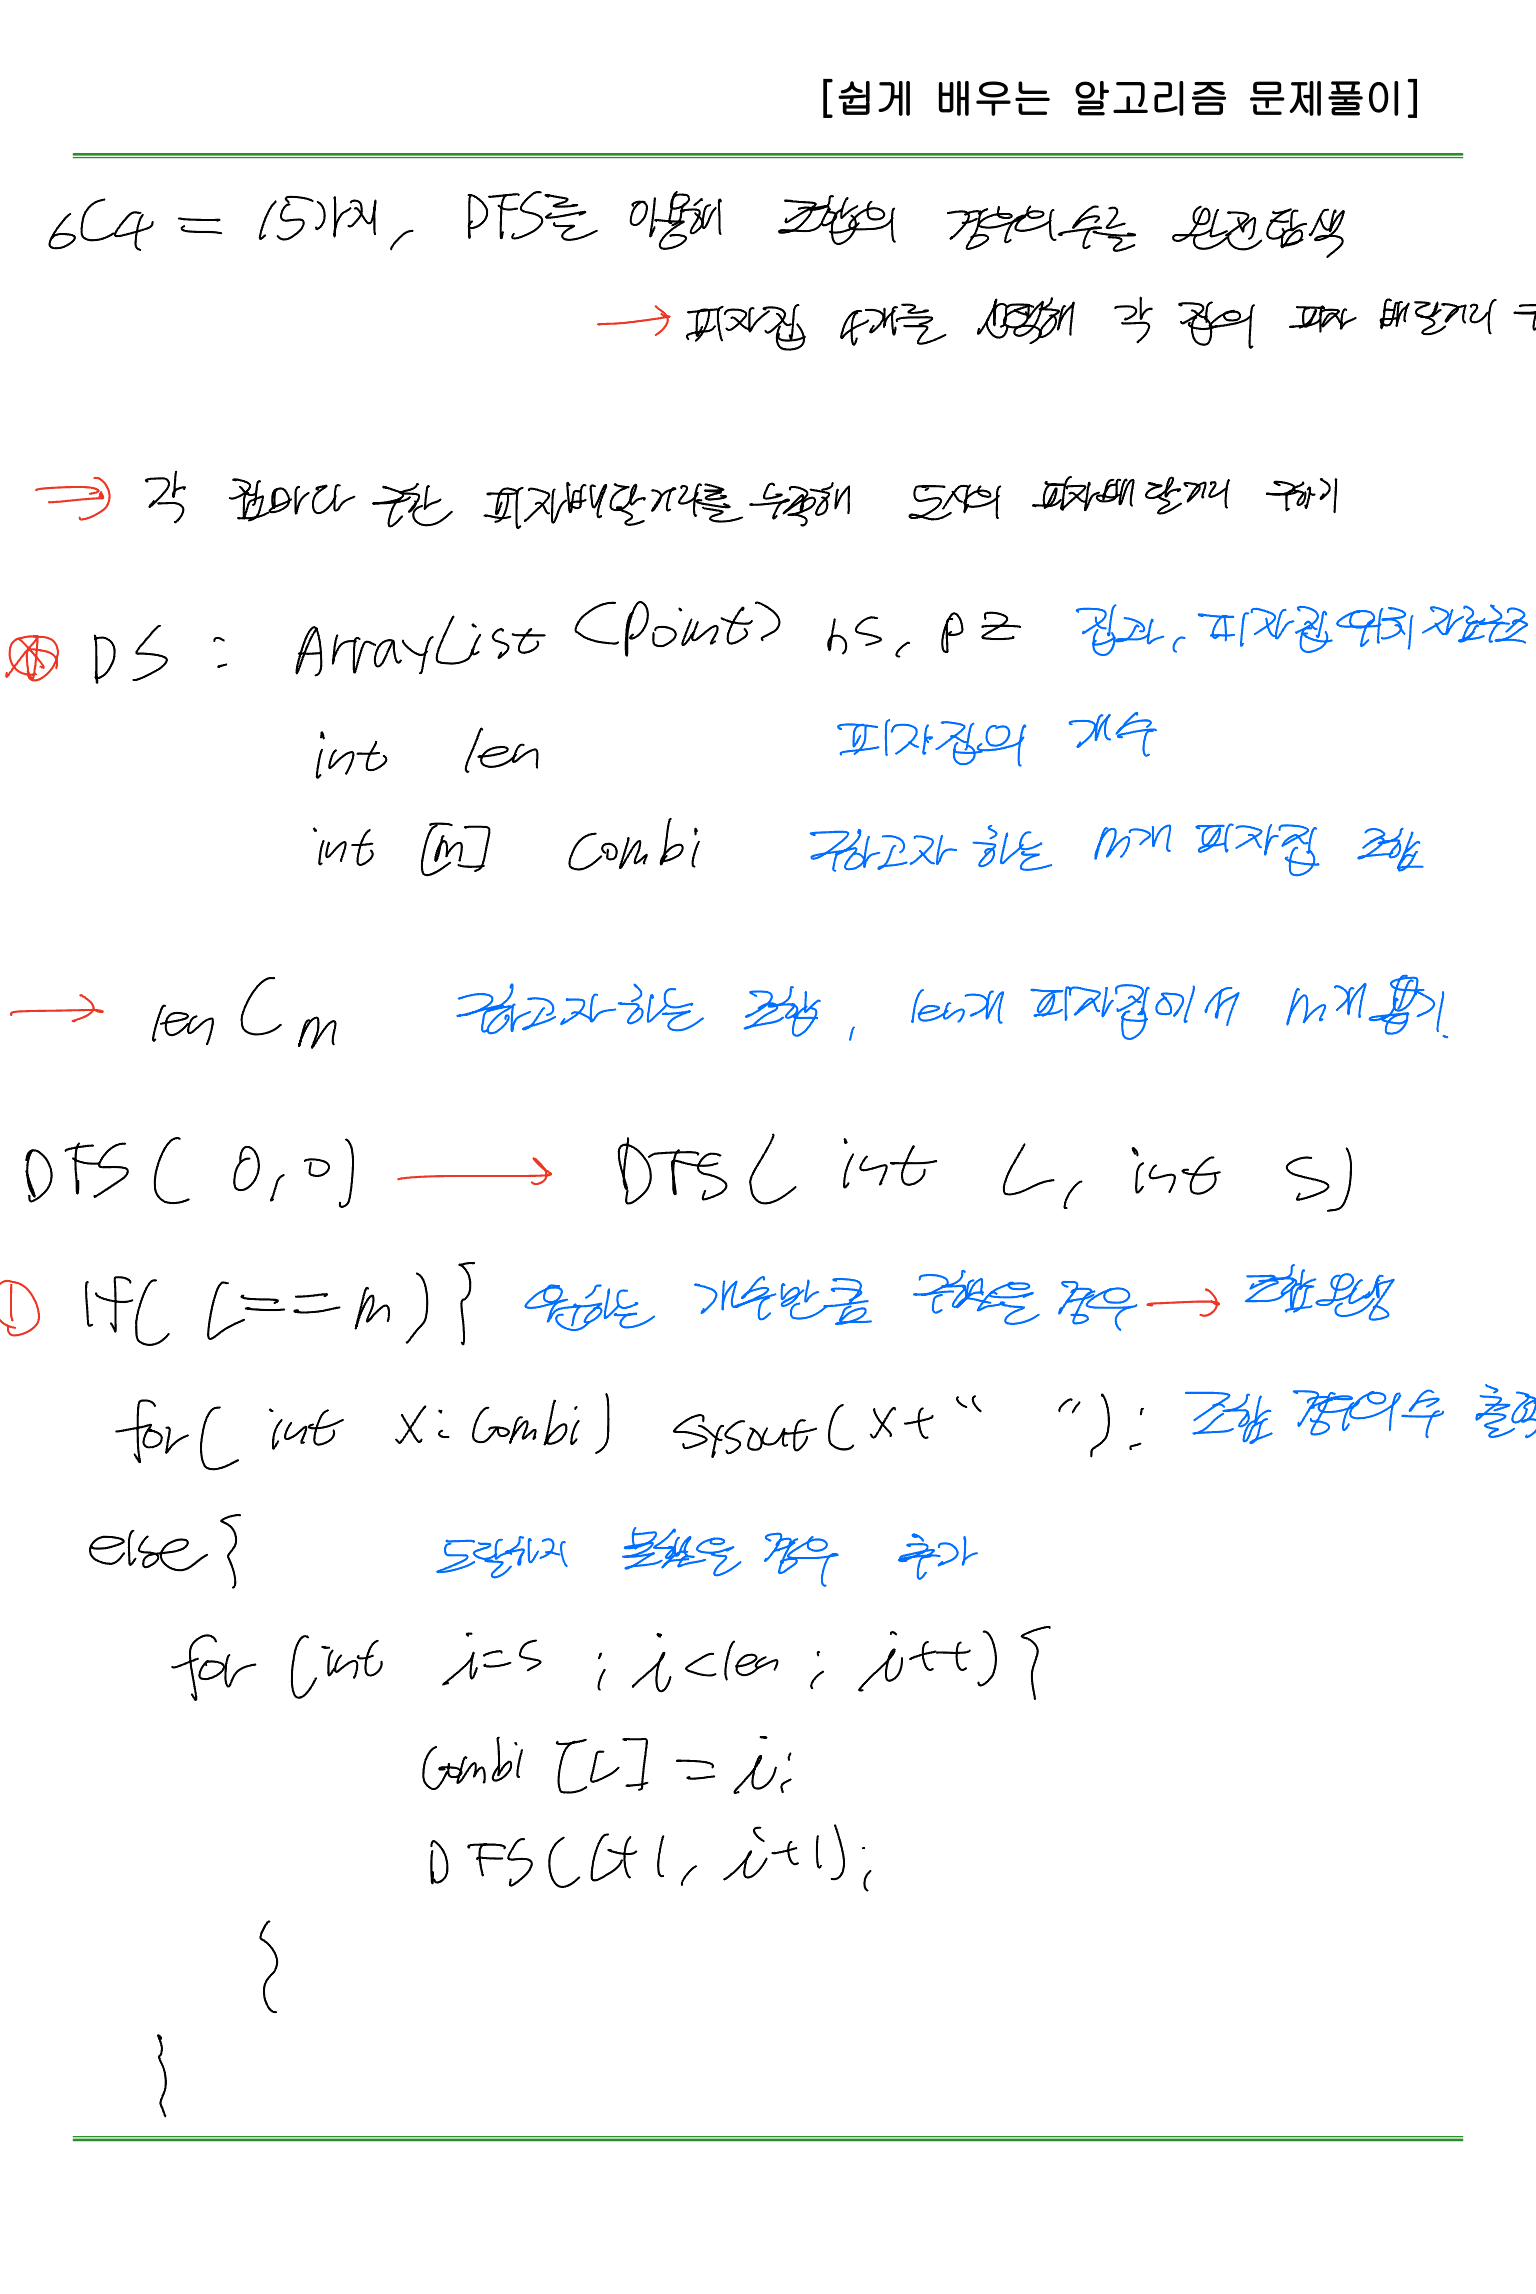 [쉽게 배우는 알고리즘 문제풀이]
6C4 = 15가지, DFS를 이용해 조합의 경우의수를 완전탐색
→ 피자집 4개를 선택해 각 집의 피자 배달거리
⇒ 각 집마다 구한 피자배달거리를 누적해 도시의 피자배달거리 구하기
DS : ArrayList <Point> hs, pz 집과, 피자집 위치 자료구조
int len 피자집의 개수
int [m] combi 구하고자 하는 m개 피자집 조합
→ len C m 구하고자하는 조합, len개 피자집에서 m개 뽑기.
DFS( 0, 0) → DFS( int L, int s)
① if( L==m) { 원하는 개수만큼 구했을 경우 → 조합완성
for( int x: combi) sysout( x+" "); 조합 경우의수 출력
else{ 도달하지 못했을 경우 추가
for (int i=s ; i<len ; i++) {
combi [L] = i;
DFS(L+1, i+1);
}
}